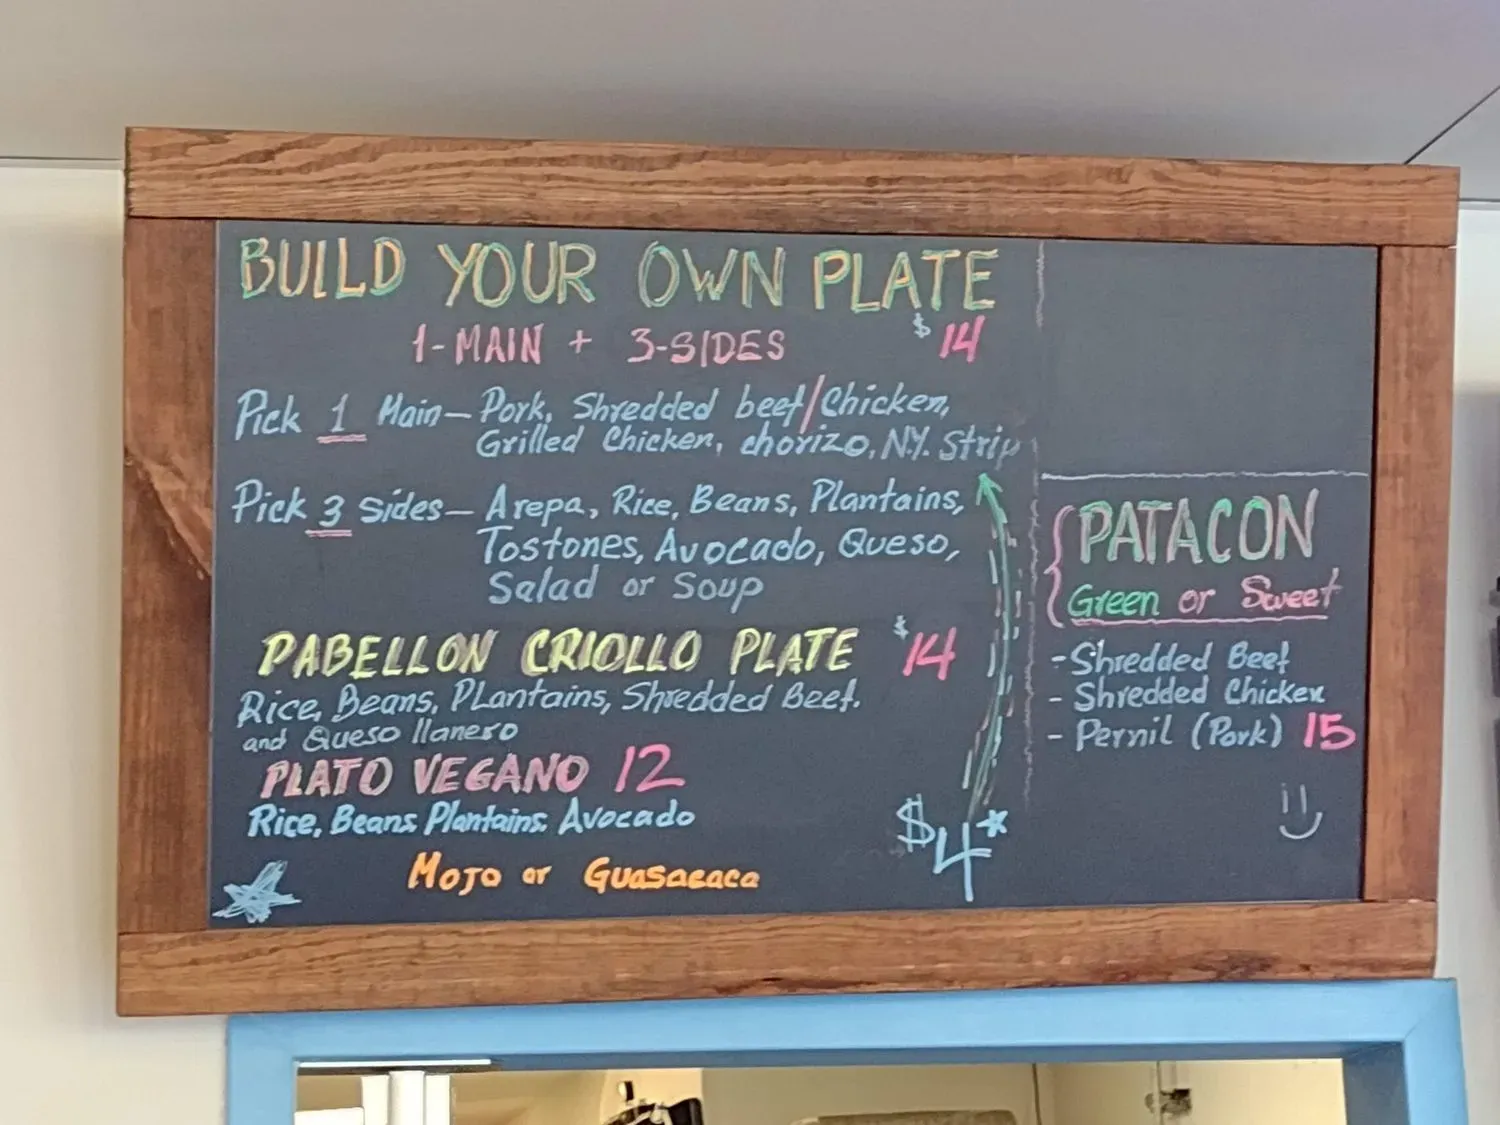 BUILD YOUR OWN PLATE
1-MAIN + 3-SIDES $14
Pick 1 Main- Pork, Shredded beef/Chicken,
Grilled Chicken, chorizo, N.Y. Strip
Pick 3 Sides- Arepa, Rice, Beans, Plantains,
Tostones, Avocado, Queso,
Salad or Soup
PABELLON CRIOLLO PLATE $14
Rice, Beans, Plantains, Shredded Beef.
and Queso llanero
PLATO VEGANO 12
Rice, Beans, Plantains, Avocado
Mojo or Guasacaca
$4*
PATACON
Green or Sweet
- Shredded Beef
- Shredded Chicken
- Pernil (Pork) 15